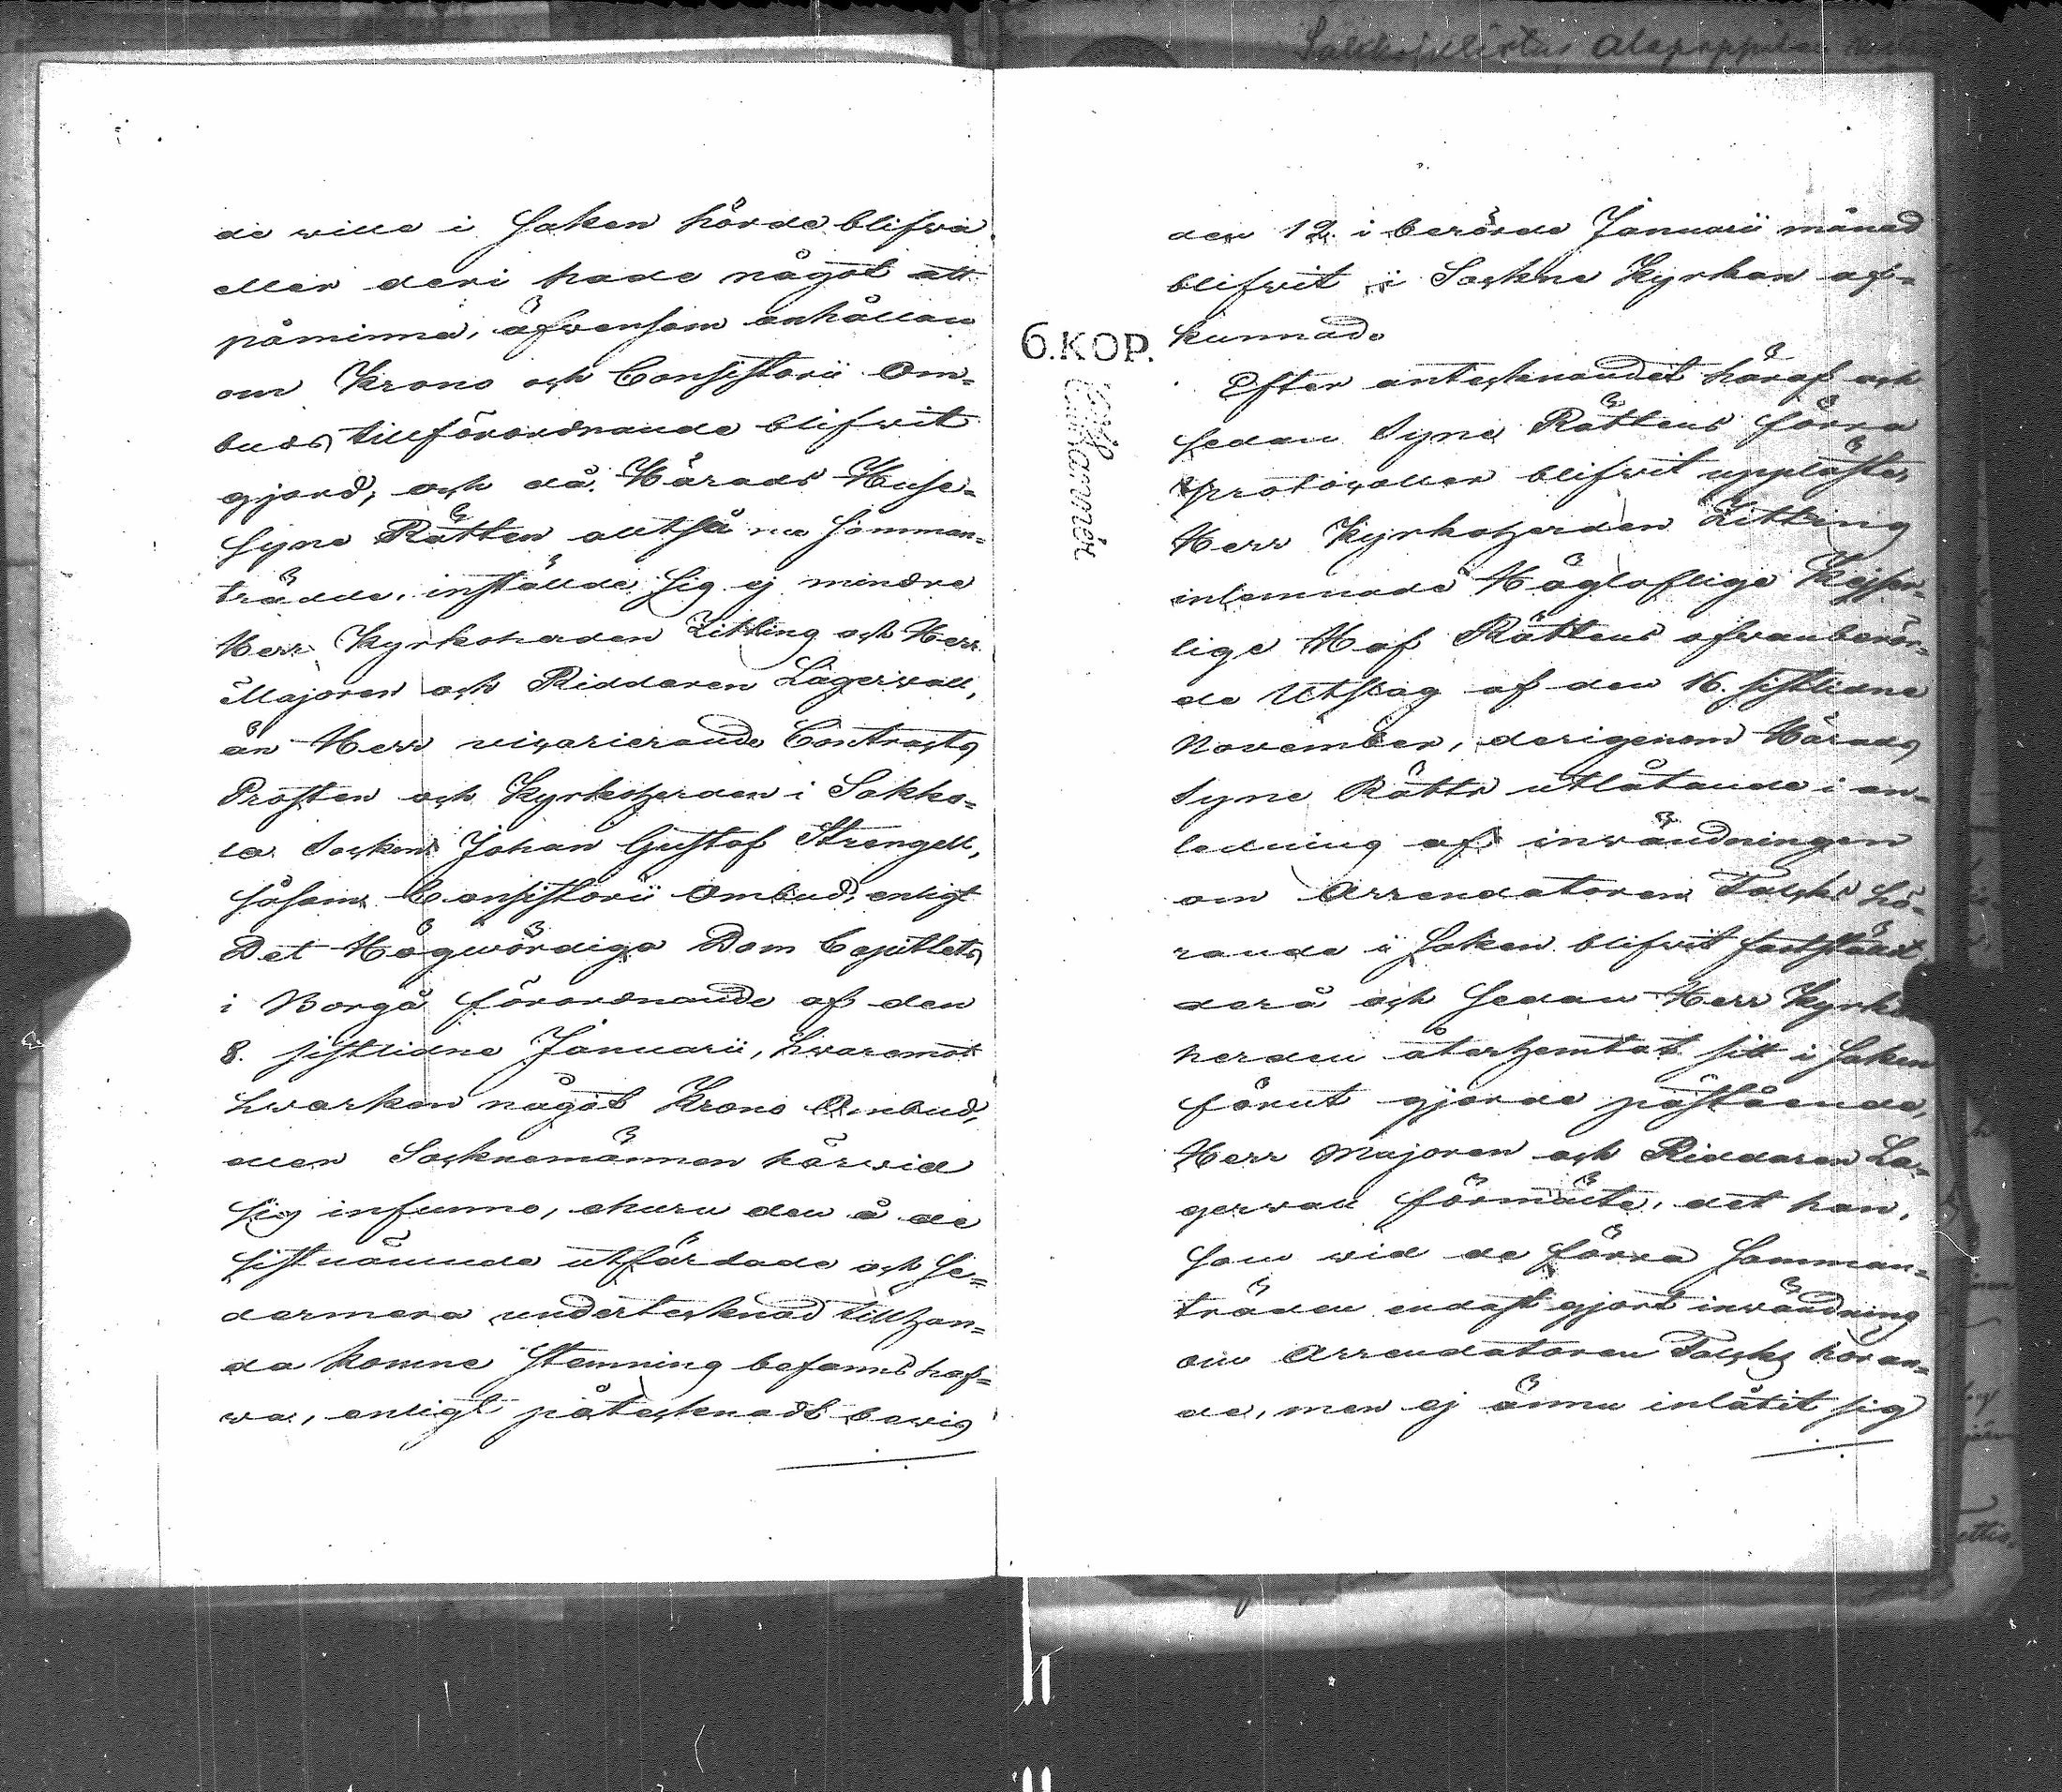 de wille i saken hörde blifwa
eller deri hade något att
påminna, äfwensom anhållan
om Krono och Consistorii Om-
buds tillförordnande blifwit
gjord, och då Härads Huse-
syne Rätten alltså nu samman-
trädde, inställde sig ej mindre
Herr Kyrkoherden Zitting och Herr
Majoren och Riddaren Lagerwall,
än Herr vicarierande Contracts
Prosten och Kyrkoherden i Sakko-
la Socken Johan Gustaf Strengell,
såsom Consistorii Ombud, enligt
Det Högwördiga Dom Capitlets
i Borgå förordnande af den
8. sistlidne Januarii, hwaremot
hwarken något Krono Ombud,
eller Socknemännen härwid
sig infunno, ehuru den å de
sistnämnde utfärdade och se-
dermera undertecknad tillhan-
da komne stemning befanns haf-
wa, enligt påtecknadt bewis
den 12. i berörde Januarii månad
blifwit i Sockne Kyrkan af-
kunnad.
6.KOP.
Efter antecknandet häraf och
sedan Syne Rättens förra
protocoller blifwit uppläste,
Herr Kyrkoherden Zitting
inlemnade Högloflige Kejser-
lige Hof Rättens ofwanberör-
de Utslag af den 16. sistlidne
November, derigenom Härads
Syne Rätts utlåtande i an-
ledning af inwändningen
om Arrendatoren Falcks hö-
rande i saken blifwit fastställt
derå och sedan Herr Kyrko
herden återhemtat sitt i saken
förut gjorde påstående,
Herr Majoren och Riddaren La-
gerwall förmälte, det han,
som wid de förra samman-
träden endast gjort inwändning
om Arrendatoren Falcks höran-
de, men ej ännu inlåtit sig